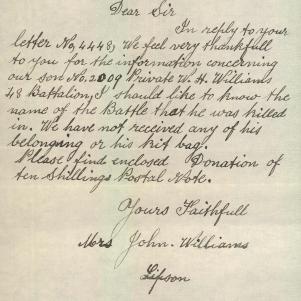 Dear Sir
In reply to your
letter No, 4448, We feel very thankfull
to you for the information concerning
our son No. 2009 Private W. H. Williams
48 Battalion, I should like to know the
name of the Battle that he was killed
in. We have not received any of his
belongong or his kit bag.
Please find enclosed Donation of
ten shillings Postal Note.
Yours Faithfull
Mrs John. Williams
Lipson